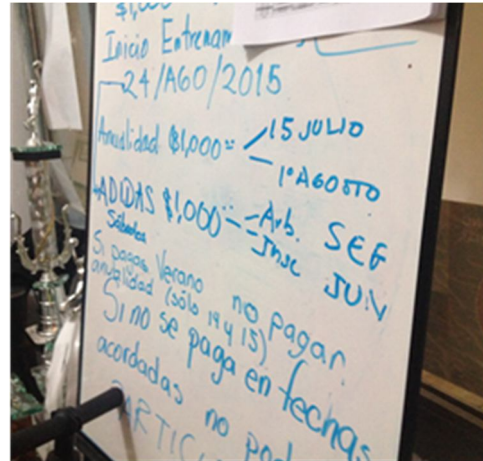 $1,000
Inicio Entrenam
24/AGO/2015
Anualidad $1,000= 15 JULIO
1° AGOSTO
ADIDAS $1,000= Arb. SEG
Sábados Insc JUV
Si pagas Verano no pagar
anualidad (sólo 14 y 15)
Si no se paga en fechas
acordadas no pod
PARTICI